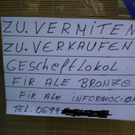 ZU.VERMITEN
ZU.VERKAUFEN
GESCHEFTLOKOL.
FIR ALE BRONZE
FIR ALE INFORMOCION
TEL.0699